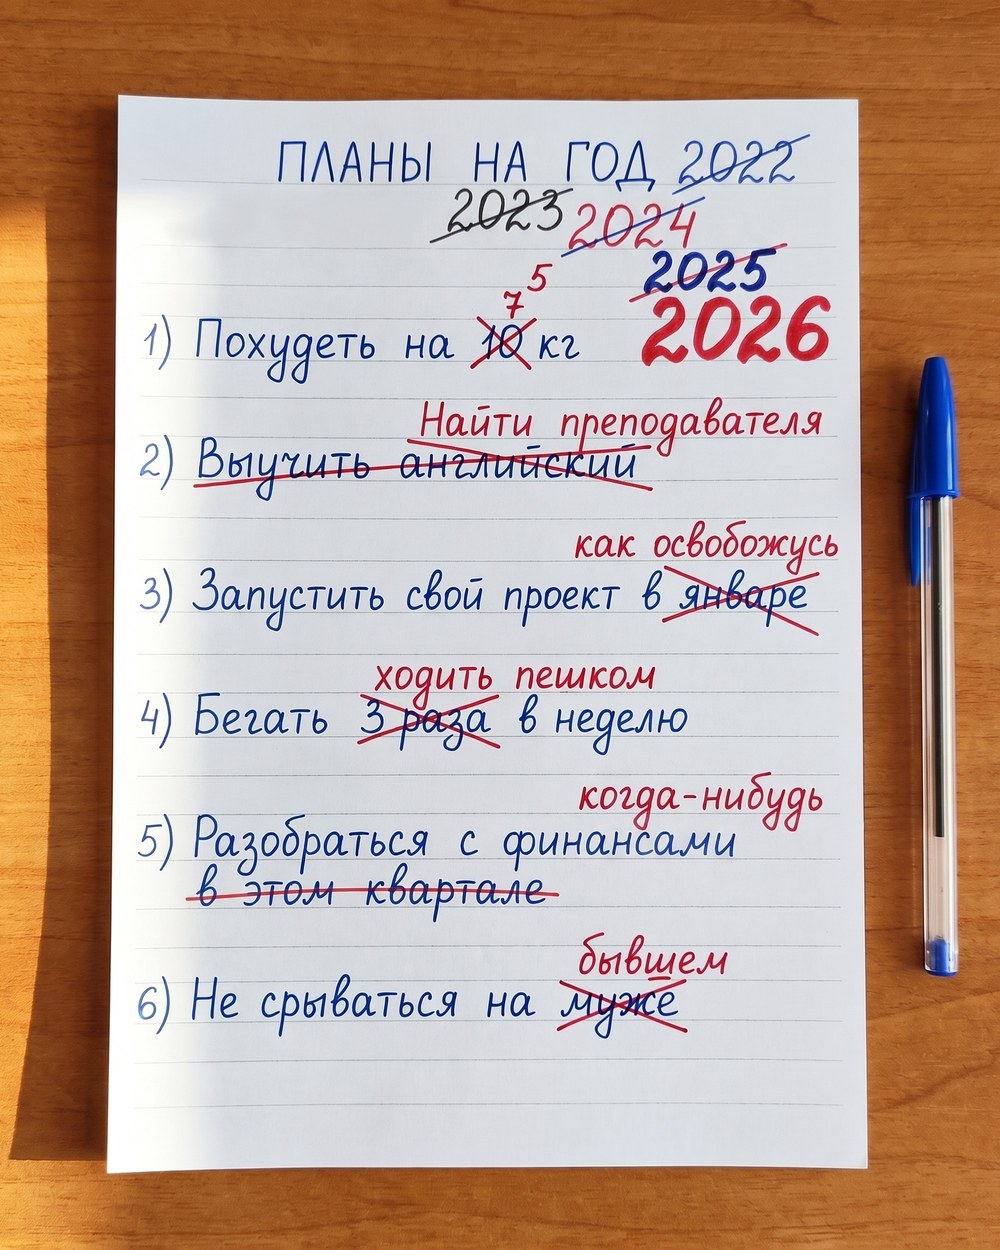 ПЛАНЫ НА ГОД 2022
2023 2024
2025
2026
5
7
1) Похудеть на 10 кг
Найти преподавателя
2) Выучить английский
как освобожусь
3) Запустить свой проект в январе
ходить пешком
4) Бегать 3 раза в неделю
когда-нибудь
5) Разобраться с финансами
в этом квартале
бывшем
6) Не срываться на муже